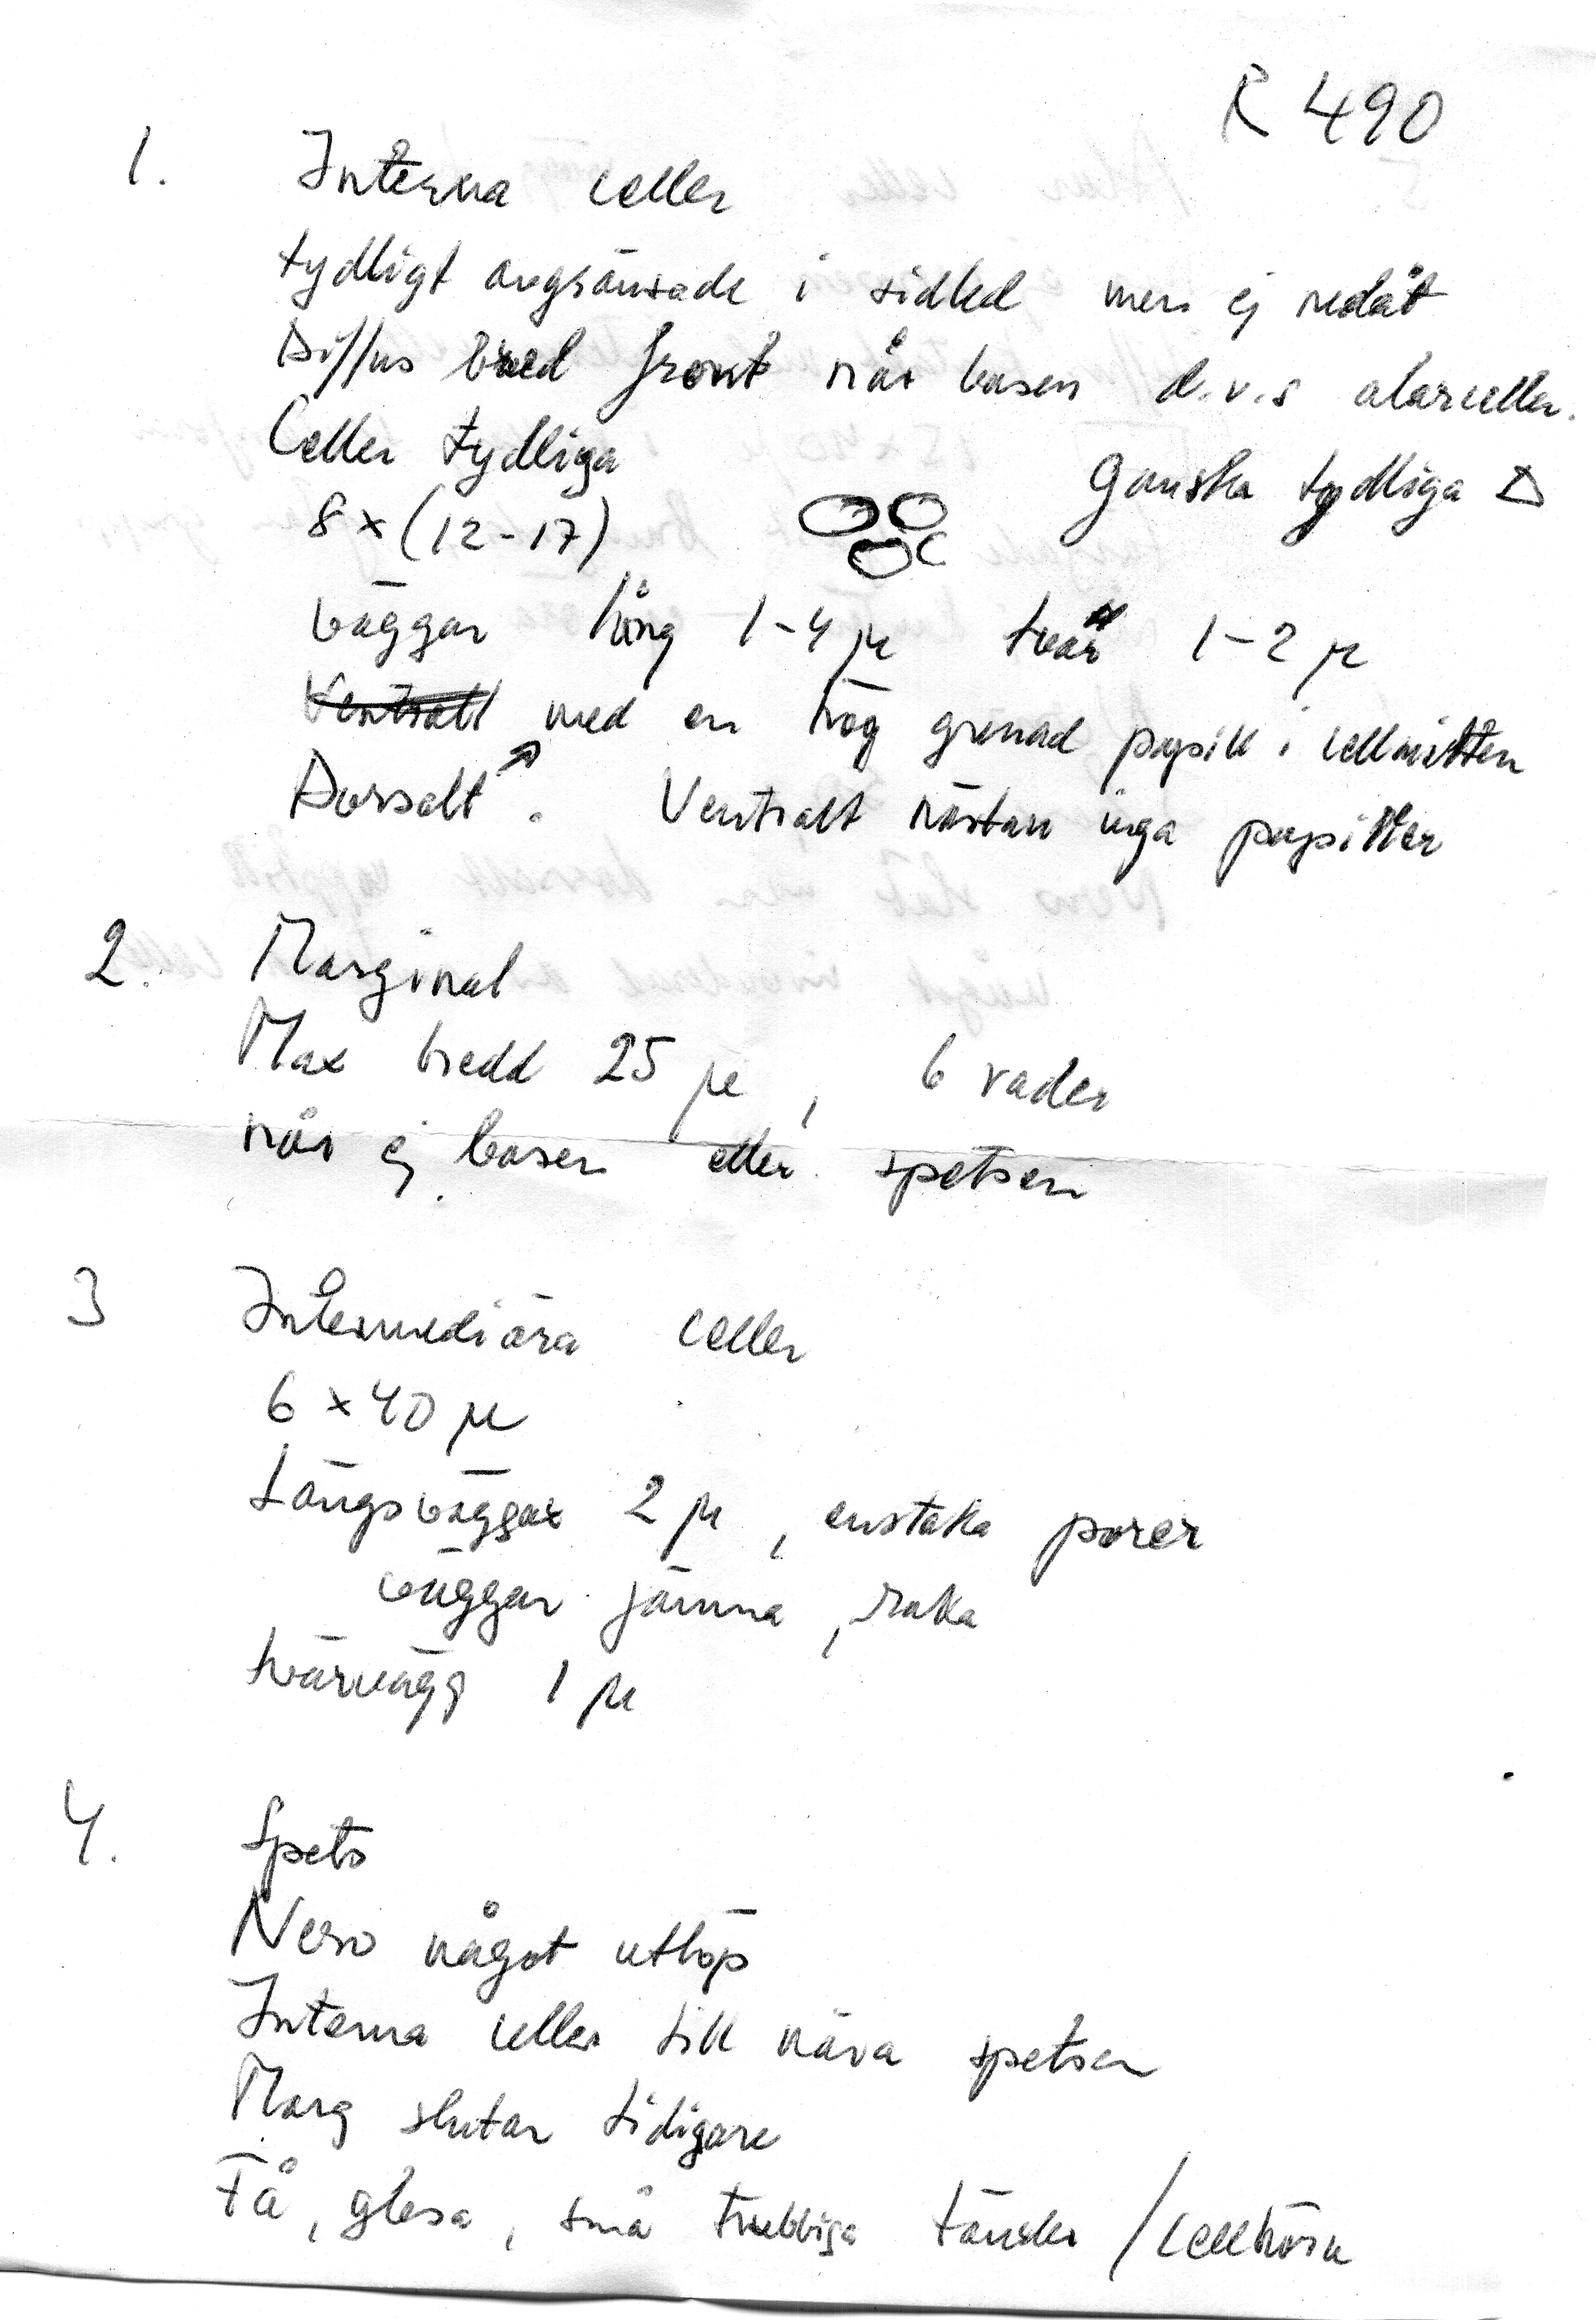 R 490
1. Interna celler
tydligt avgränsade i sidled men ej nedåt
Diffus bred front når basen d.v.s alarceller.
Celler tydliga
Ganska tydliga △
8 x (12-17)
väggar lång 1-4 μ tvär 1-2 μ
Ventralt med en hög grenad papill i cellmitten
Dorsalt. Ventralt nästan inga papiller
2. Marginal
Max bredd 25 μ, 6 rader
når ej basen eller spetsen
3 Intermediära celler
6 x 40 μ
Längsväggar 2 μ, enstaka porer
väggar jämna, raka
tvärvägg 1 μ
4. Spets
Nerv något utlöp
Interna celler till nära spetsen
Marg slutar tidigare
Få, glesa, små trubbiga tänder / cellhörn